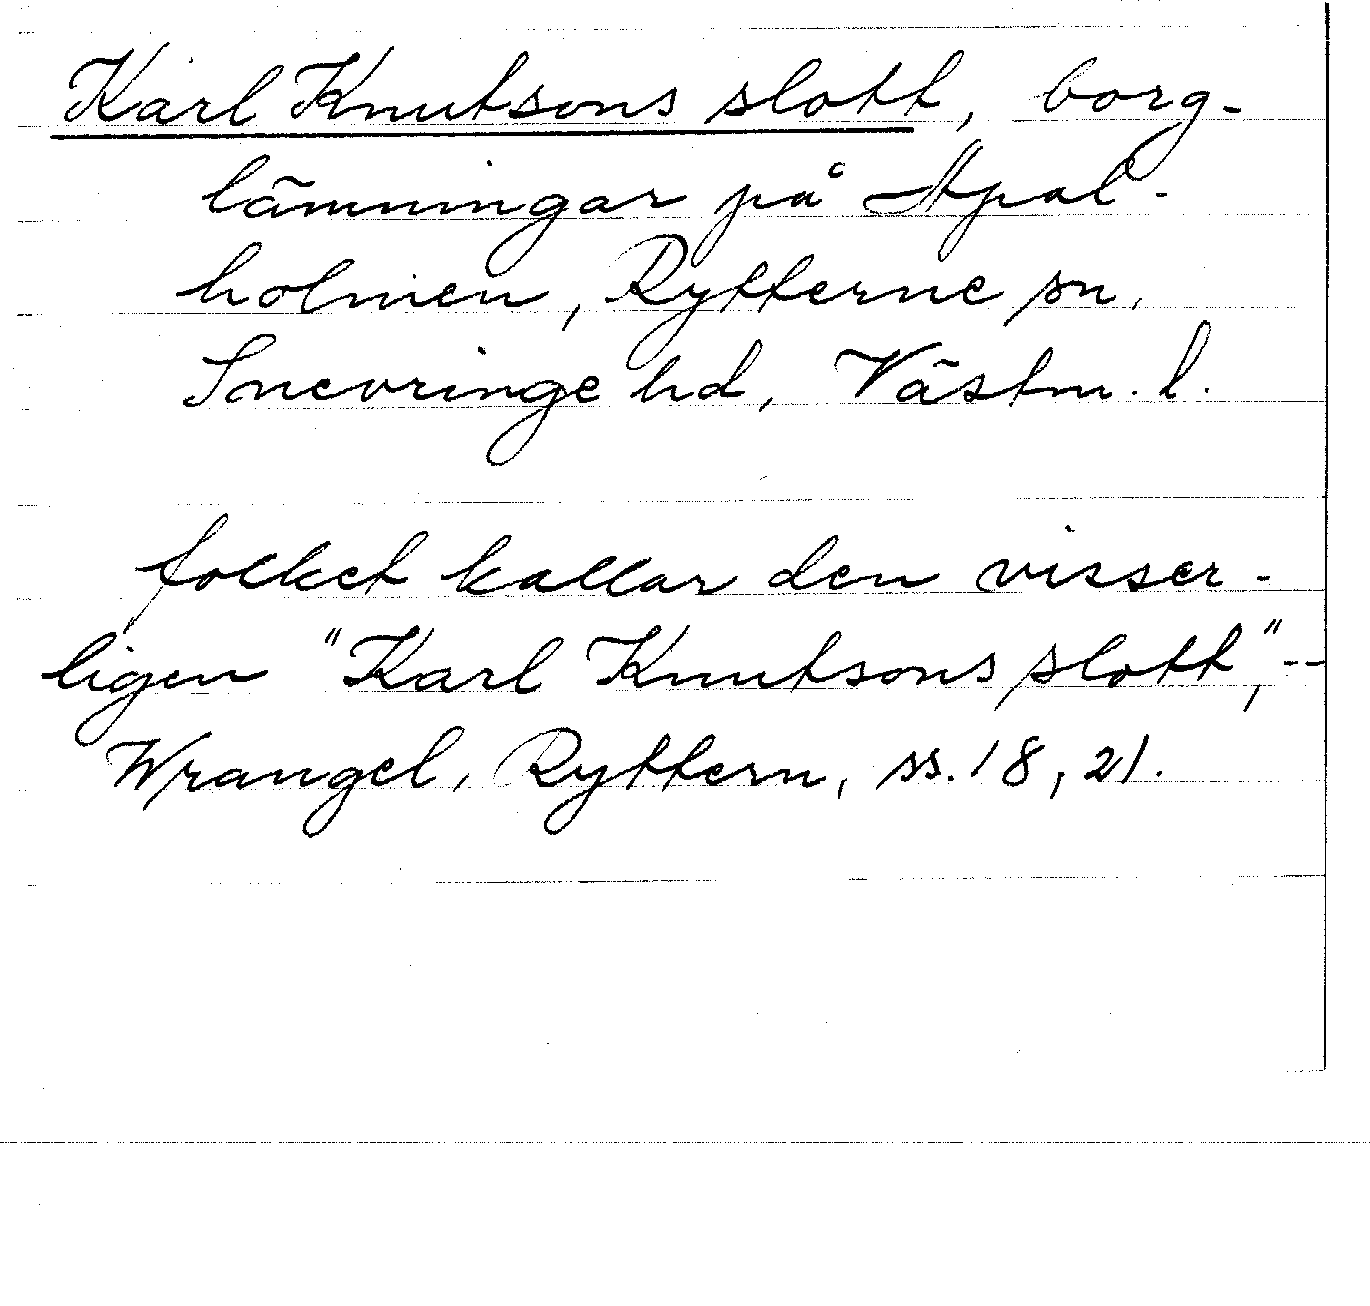 Karl Knutsons slott, borg-
lämningar på Apal-
holmen, Rytterne sn,
Snevringe hd, Västm. l.
folket kallar den visser-
ligen "Karl Knutsons slott", --
Wrangel, Ryttern, ss. 18, 21.